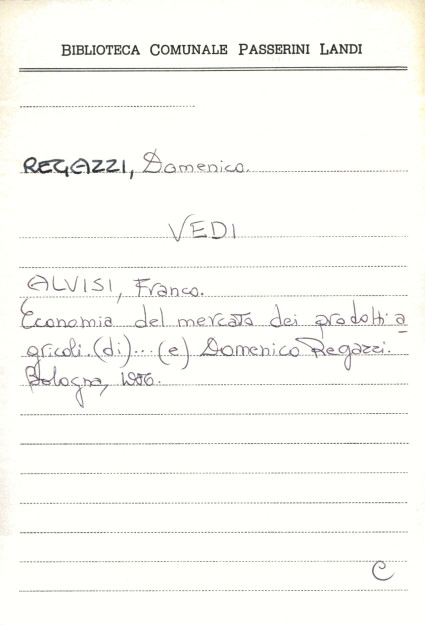 BIBLIOTECA COMUNALE PASSERINI LANDI
REGAZZI, Domenico.
VEDI
ALVISI, Franco.
Economia del mercato dei prodotti a
gricoli.(di)...(e) Domenico Regazzi.
Bologna,
C